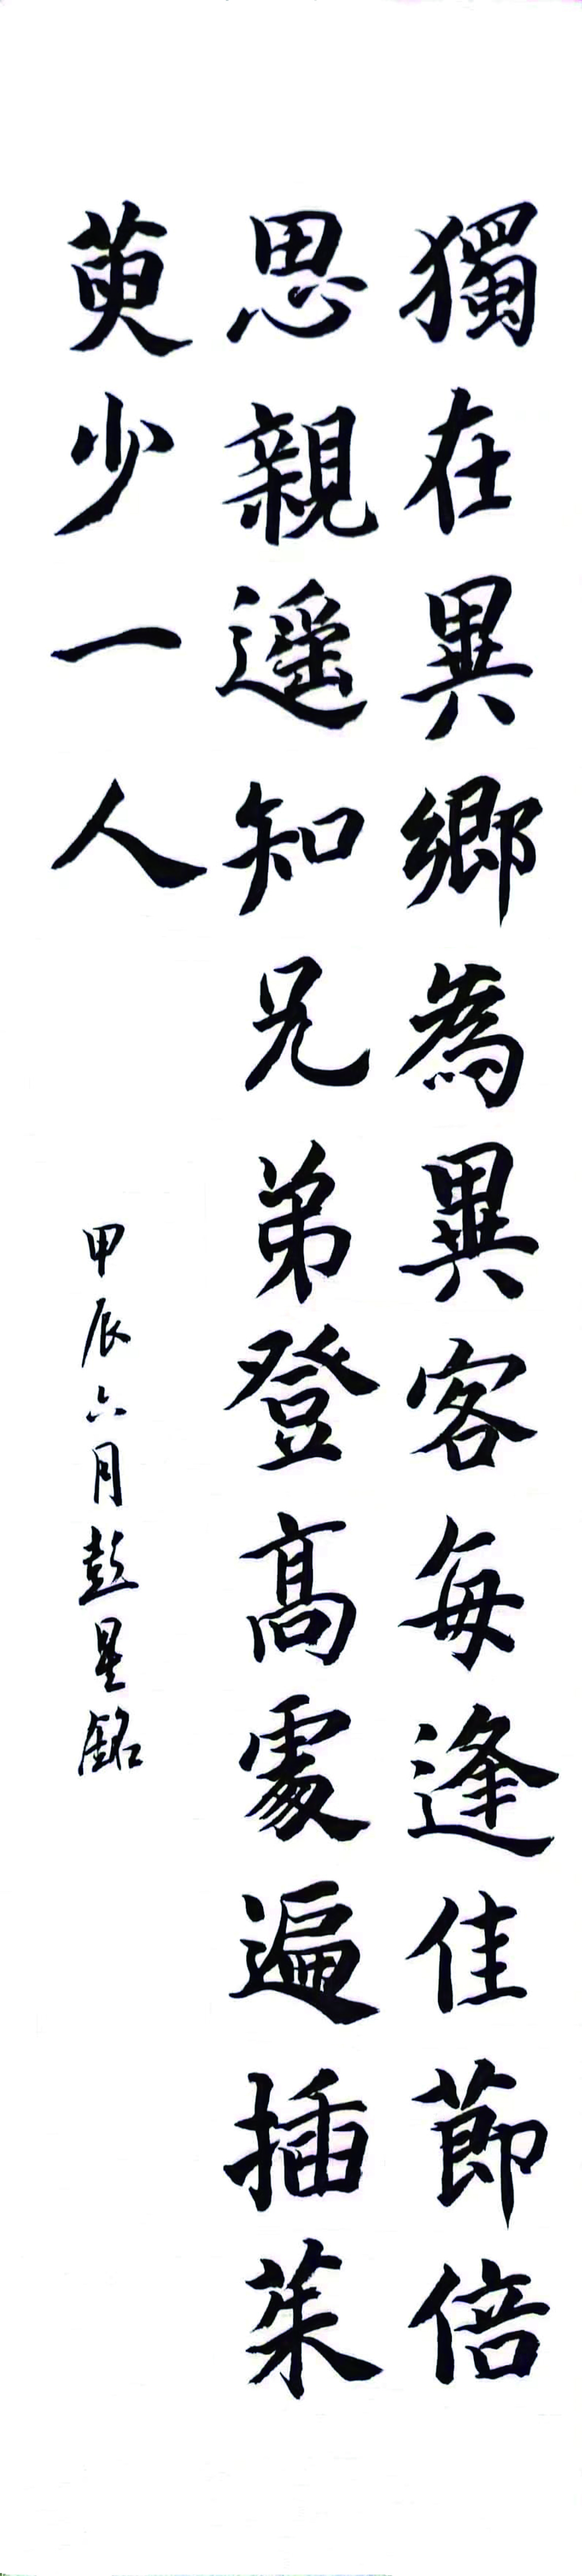 獨在異鄉為異客每逢佳節倍
思親遥知兄弟登高處遍插茱
萸少一人
甲辰六月彭星銘